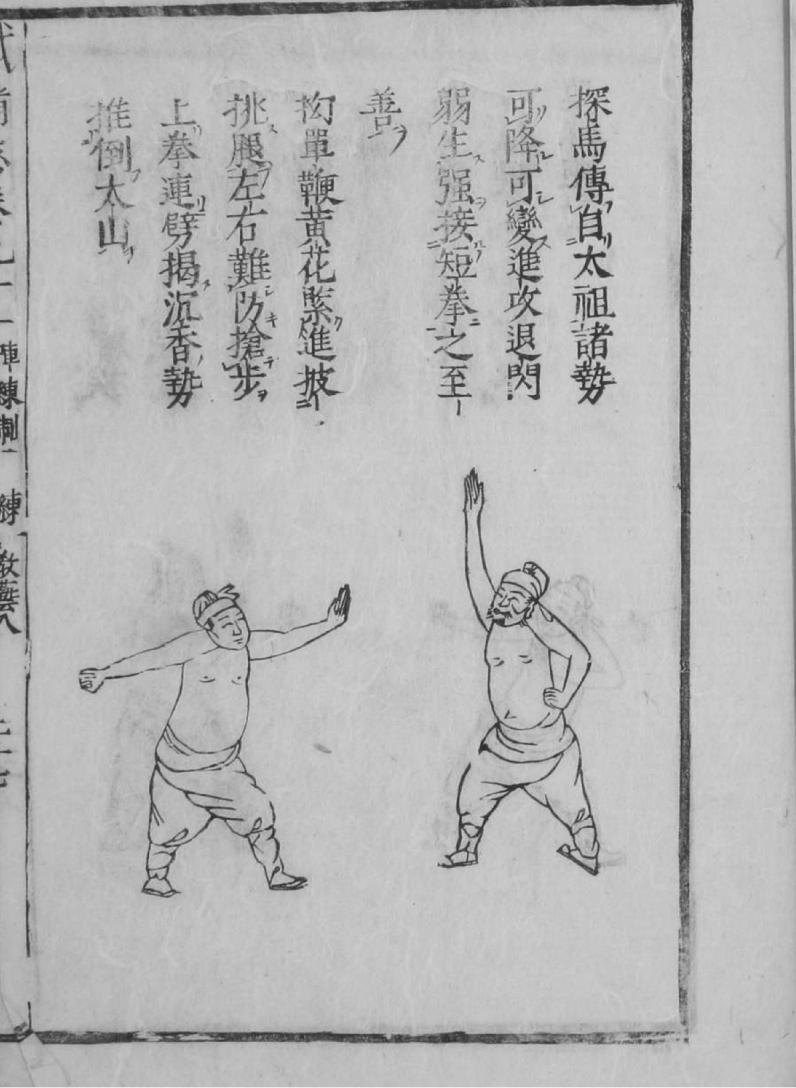 探馬傳自太祖諸勢
可降可變進攻退閃
弱生强接短拳之至
善
抝單鞭黄花緊進披
挑腿左右難防搶步
上拳連劈揭沉香勢
推倒太山
陣練制 練 教藝八